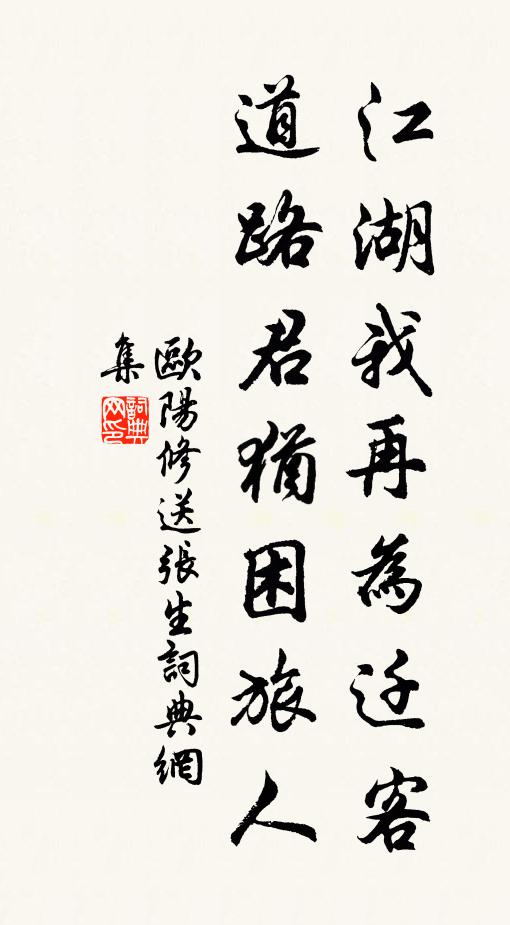 江湖我再為迁客
道路君猶困旅人
歐陽修送張生詞典網
集
詞典
网印